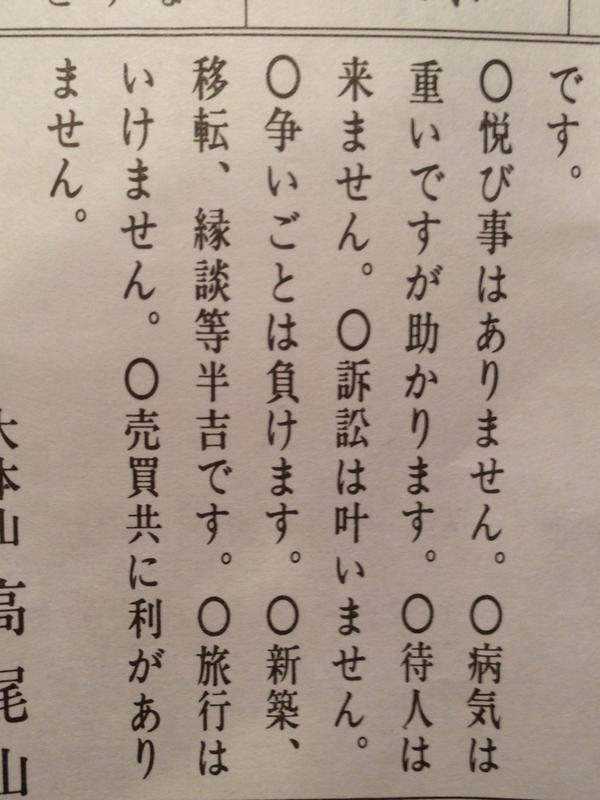 です。
〇悦び事はありません。〇病気は
重いですが助かります。〇待人は
来ません。〇訴訟は叶いません。
〇争いごとは負けます。〇新築、
移転、縁談等半吉です。〇旅行は
いけません。〇売買共に利があり
ません。
大本山 高尾山